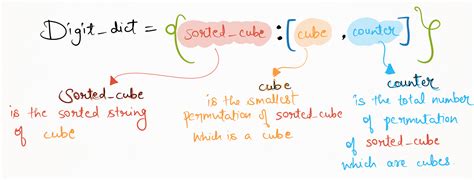 Digit_dict = { sorted_cube : [ cube , counter ] }
Sorted_cube
is the sorted string
of cube
cube
is the smallest
permutation of sorted_cube
which is a cube
counter
is the total number
of permutation
of sorted_cube
which are cubes.